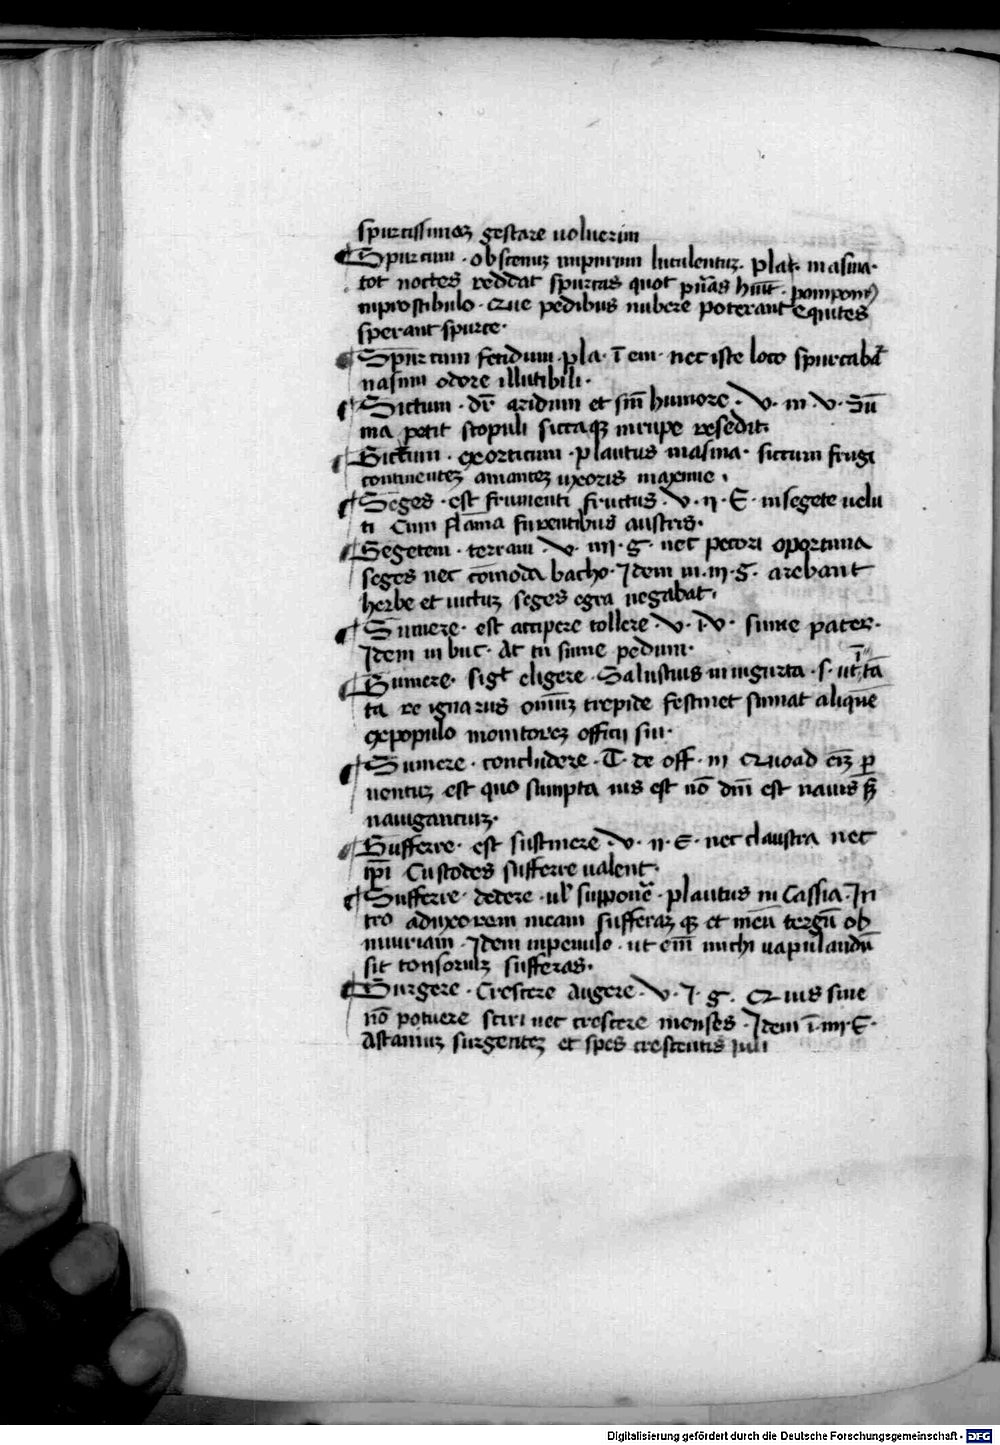 spurcissimaꝫ gestare uoluerim
Spurcum · obscenuꝫ impurum luculentuꝫ · plat · masina ·
tot noctes reddat spurcas quot
inprostibulo · Que pedibus nubere poterant equites
sperant spurce ·
Spurcum fetidum · pla · ī em · nec iste loco
nasum odore illutibili ·
Siccum · dr̄ aridum et sin̄ humore · v · in · v · Sū
ma petit scopuli siccaqꝫ inrupe resedit ·
Siccum · exorticum · plautus masina · siccum frugi
continenteꝫ amanteꝫ uxoris maxime ·
Seges · est frumenti fructus · v · ii · E · insegete uelu
ti Cum flāma furentibus austris ·
Segetem · terram · v · iiii · g · nec pecori oportuna
seges nec cōmoda bacho · Idem in · iii · g · arebant
herbe et uictuꝫ seges egra negabat ·
Sumere · est accipere tollere · v · i · v · sume pater ·
Idem in buc · At tu sume pedum ·
Sumere · sigt̄ eligere · Salustius in iugurta · s · ut ī tā
ta re ignarus om̄iuꝫ trepide festinet sumat aliquē
expopulo monitoreꝫ officij sui ·
Sumere · concludere · T · de off · iii Quoad eiꝫ per
uentuꝫ est quo sumpta nis est nō dm̄ est nauis
nauigantiuꝫ ·
Sufferre · est sustinere · v · ii · E · nec claustra nec
ip̄i Custodes sufferre ualent ·
Sufferre · dedere · ul̄ supponē · plautus in Cassia · In
tro aduxorem meam sufferaꝫ qꝫ et meū tergū ob
iniuriam · Idem inpenulo · ut eīn michi uapulandū
sit tonsoruꝫ sufferas ·
Surgere · Crescere Augere · v · I · g · Quis sine
nō potuere sciri nec crescere menses · Idem ī · iiii · E ·
Astaniuꝫ surgenteꝫ et spes crescentis iuli
Digitalisierung gefördert durch die Deutsche Forschungsgemeinschaft - DFG